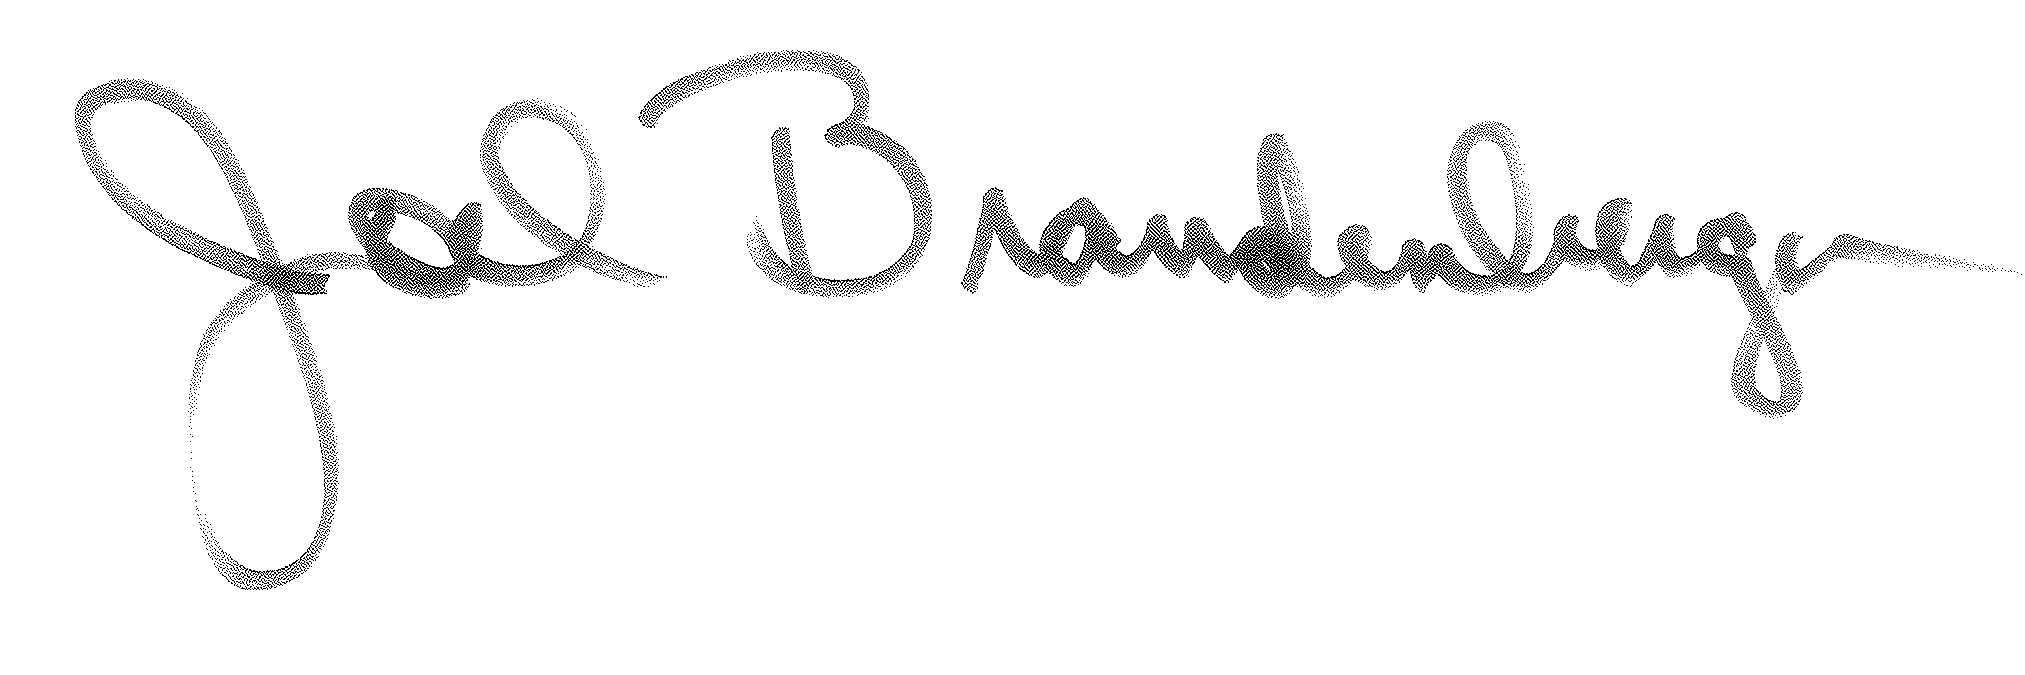 Joel Brandenberger